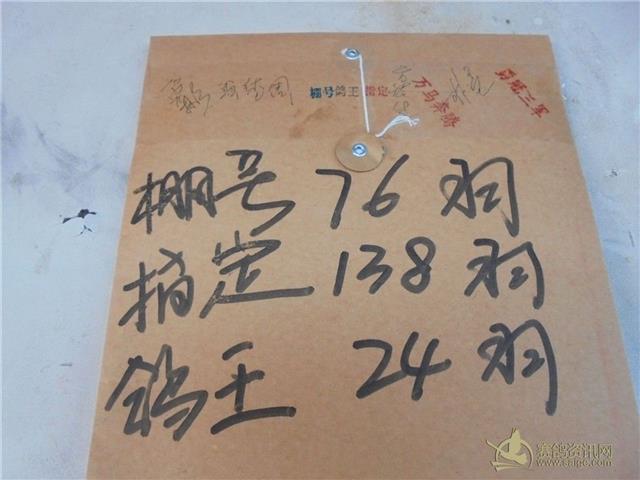 棚号鸽王指定
万马奔腾
勇冠三军
棚号 76 羽
指定 138 羽
鸽王 24 羽
赛鸽资讯网
www.saige.com